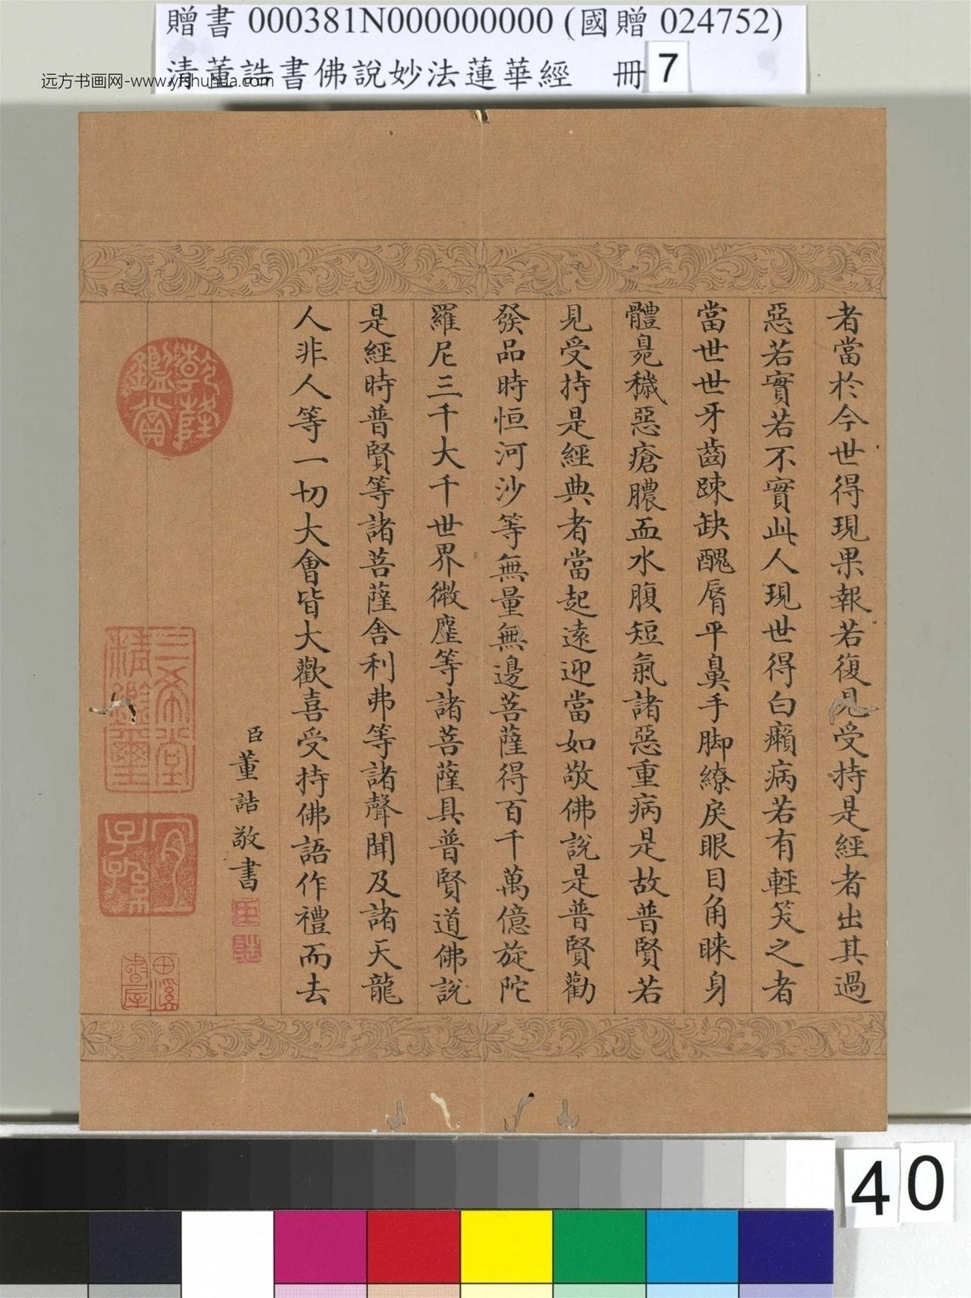 贈書 000381N000000000 (國贈 024752)
清董誥書佛說妙法蓮華經 冊 7
远方书画网-www.yfshuhua.com
者當於今世得現果報若復見受持是經者出其過
惡若實若不實此人現世得白癩病若有輕笑之者
當世世牙齒踈缺醜脣平鼻手脚繚戾眼目角睞身
體臭穢惡瘡膿血水腹短氣諸惡重病是故普賢若
見受持是經典者當起遠迎當如敬佛說是普賢勸
發品時恒河沙等無量無邊菩薩得百千萬億旋陀
羅尼三千大千世界微塵等諸菩薩具普賢道佛說
是經時普賢等諸菩薩舍利弗等諸聲聞及諸天龍
人非人等一切大會皆大歡喜受持佛語作禮而去
臣董誥敬書
臣誥
乾隆鑑賞
三希堂精鑑璽
宜子孫
40